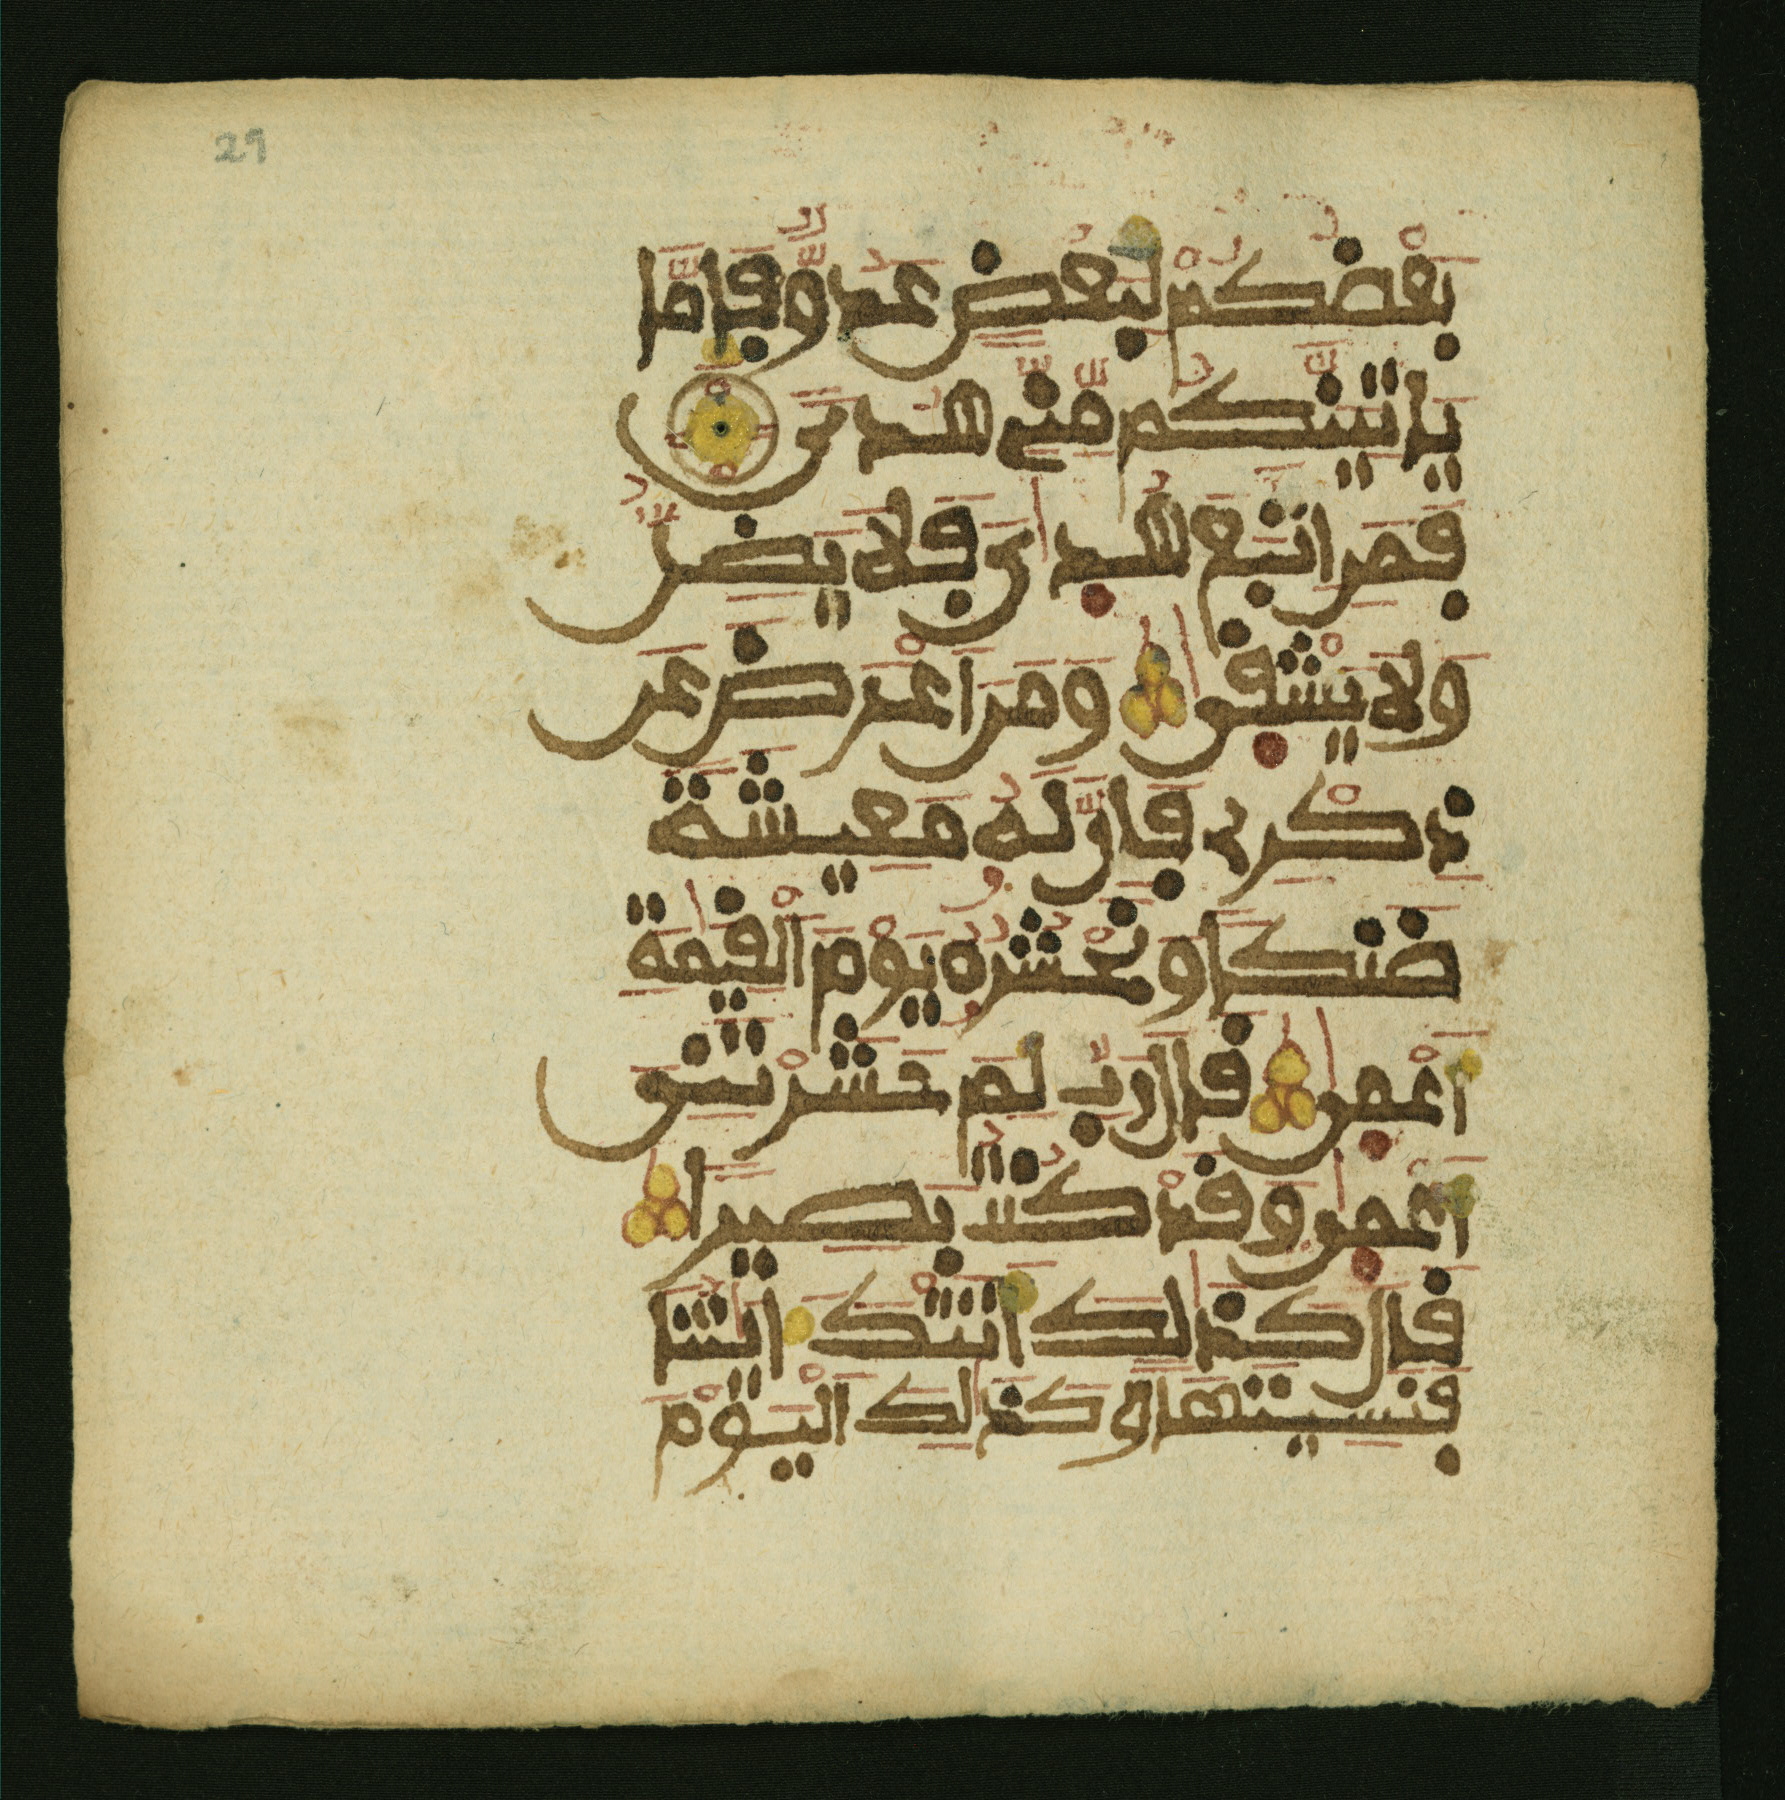 29
بَعْضُكُمْ لِبَعْضٍ عَدُوٌّ فَإِمَّا
يَاتِيَنَّكُم مِّنِّے هُدىً
فَمَنِ اتَّبَعَ هُدَىٰ فَلَا يَضِلُّ
وَلَا يَشْقَىٰ وَمَنَ اَعْرَضَ عَن
ذِكْرِے فَإِنَّ لَهُ مَعِيشَةً
ضَنكًا وَنَحْشُرُهُ يَوْمَ الْقِيَٰمَةِ
أَعْمَىٰ قَالَ رَبِّ لِمَ حَشَرْتَنِي
أَعْمَىٰ وَقَدْ كُنتُ بَصِيرًا
قَالَ كَذَٰلِكَ أَتَتْكَ ءَايَٰتُنَا
فَنَسِيتَهَا وَكَذَٰلِكَ الْيَوْمَ